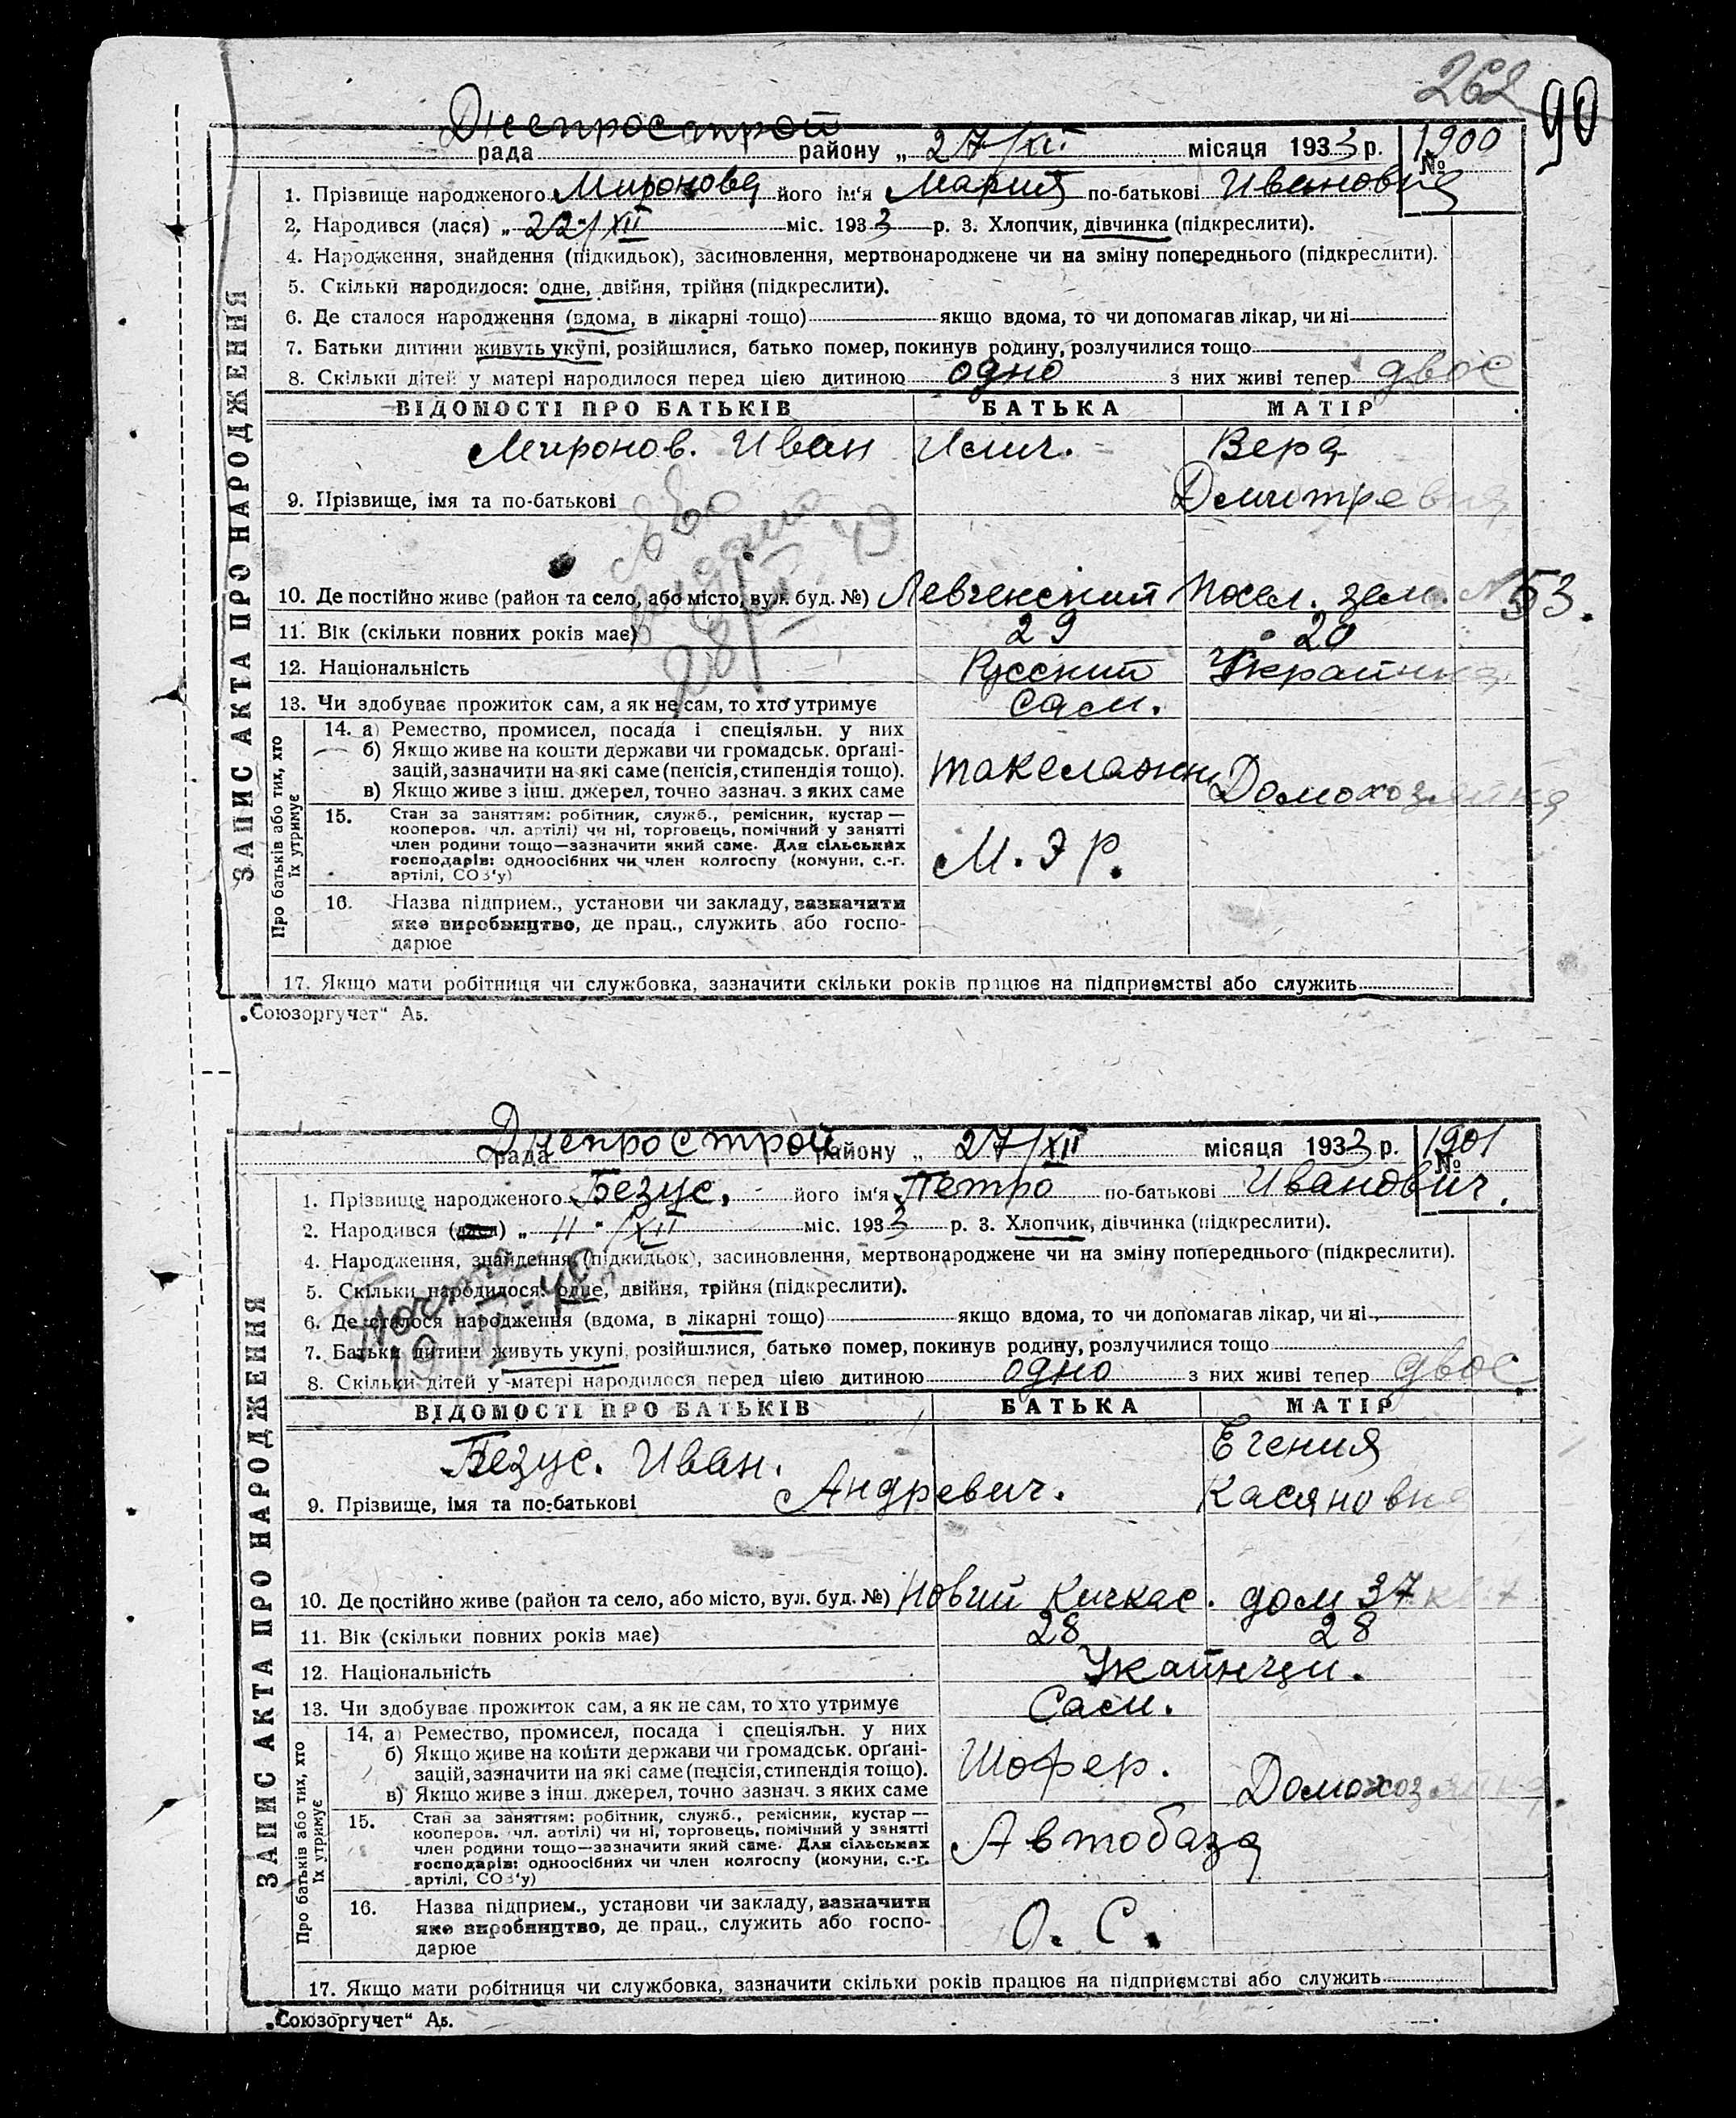 262
90
Днепрострой
рада районy „ 27/XII місяця 1933 р. № 1900
1. Прізвище народженого Миронова його ім'я Мария по-батькові Ивановна
2. Народився (лася) „ 22"/XII міс. 1933 р. 3. Хлопчик, дівчинка (підкреслити).
4. Народження, знайдення (підкидьок), засиновлення, мертвонароджене чи на зміну попереднього (підкреслити).
5. Скільки народилося: одне, двійня, трійня (підкреслити).
6. Де сталося народження (вдома, в лікарні тощо) якщо вдома, то чи допомагав лікар, чи ні
7. Батьки дитини живуть укупі, розійшлися, батько помер, покинув родину, розлучилися тощо
8. Скільки дітей у матері народилося перед цією дитиною одно з них живі тепер двос
ЗАПИС АКТА ПРО НАРОДЖЕННЯ
ВІДОМОСТІ ПРО БАТЬКІВ БАТЬКА МАТІР
Миронов. Иван Илич. Вера
9. Прізвище, імя та по-батькові Дмитревна
10. Де постійно живе (район та село, або місто, вул. буд. №) Левченский посел. зем. № 53.
11. Вік (скільки повних років має) 29 20
28/ 49
12. Національність Русский Украинка
13. Чи здобуває прожиток сам, а як не сам, то хто утримує Сам.
Про батьків або тих, хто їх утримує
14. а) Ремество, промисел, посада і спеціяльн. у них
б) Якщо живе на кошти держави чи громадськ. орґані-
зацій, зазначити на які саме (пенсія, стипендія тощо). такелажн Домохозяйка
в) Якщо живе з інш. джерел, точно зазнач. з яких саме
15. Стан за заняттям: робітник, служб., ремісник, кустар —
кооперов. (чл. артілі) чи ні, торговець, помічний у занятті
член родини тощо—зазначити який саме. Для сільських М. Э Р.
господарів: одноосібних чи член колгоспу (комуни, с.-г.
артілі, СОЗ'у)
16. Назва підприєм., установи чи закладу, зазначити
яке виробництво, де прац., служить або госпо-
дарює
17. Якщо мати робітниця чи службовка, зазначити скільки років працює на підприємстві або служить
„Союзоргучет" А5.
Днепрострой
рада району „ 27/XII місяця 1933 р. № 1901
1. Прізвище народженого Безус, його ім'я Петро по-батькові Иванович.
2. Народився (лася) „ 11"/XII міс. 1933 р. 3. Хлопчик, дівчинка (підкреслити).
4. Народження, знайдення (підкидьок), засиновлення, мертвонароджене чи на зміну попереднього (підкреслити).
5. Скільки народилося: одне, двійня, трійня (підкреслити).
6. Де сталося народження (вдома, в лікарні тощо) якщо вдома, то чи допомагав лікар, чи ні
7. Батьки дитини живуть укупі, розійшлися, батько помер, покинув родину, розлучилися тощо
8. Скільки дітей у матері народилося перед цією дитиною одно з них живі тепер двос
ЗАПИС АКТА ПРО НАРОДЖЕННЯ
ВІДОМОСТІ ПРО БАТЬКІВ БАТЬКА МАТІР
Безус. Иван. Егения
9. Прізвище, імя та по-батькові Андревич. Касяновна
10. Де постійно живе (район та село, або місто, вул. буд. №) Новий Кичкас. дом 37 кв. 7.
11. Вік (скільки повних років має) 28 28
12. Національність Укаинци.
13. Чи здобуває прожиток сам, а як не сам, то хто утримує Сам.
Про батьків або тих, хто їх утримує
14. а) Ремество, промисел, посада і спеціяльн. у них
б) Якщо живе на кошти держави чи громадськ. орґані- Шофер.
зацій, зазначити на які саме (пенсія, стипендія тощо).
в) Якщо живе з інш. джерел, точно зазнач. з яких саме Домохозяйка.
15. Стан за заняттям: робітник, служб., ремісник, кустар —
кооперов. (чл. артілі) чи ні, торговець, помічний у занятті Автобаза
член родини тощо—зазначити який саме. Для сільських
господарів: одноосібних чи член колгоспу (комуни, с.-г.
артілі, СОЗ'у)
16. Назва підприєм., установи чи закладу, зазначити
яке виробництво, де прац., служить або госпо- О. С.
дарює
17. Якщо мати робітниця чи службовка, зазначити скільки років працює на підприємстві або служить
„Союзоргучет" А5.